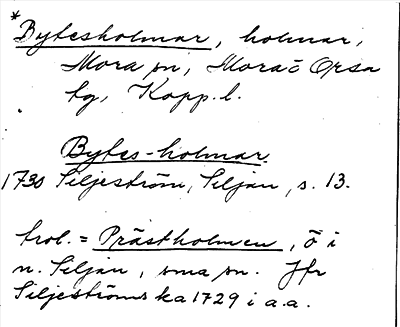 *
Bytesholmar, holmar,
Mora sn, Mora o Orsa
tg, Kopp. l.
Bytes-holmar
1730 Siljeström, Siljan, s. 13.
trol. = Prästholmen, ö i
n. Siljan, sma sn. Jfr
Siljeströms ka 1729 i a.a.